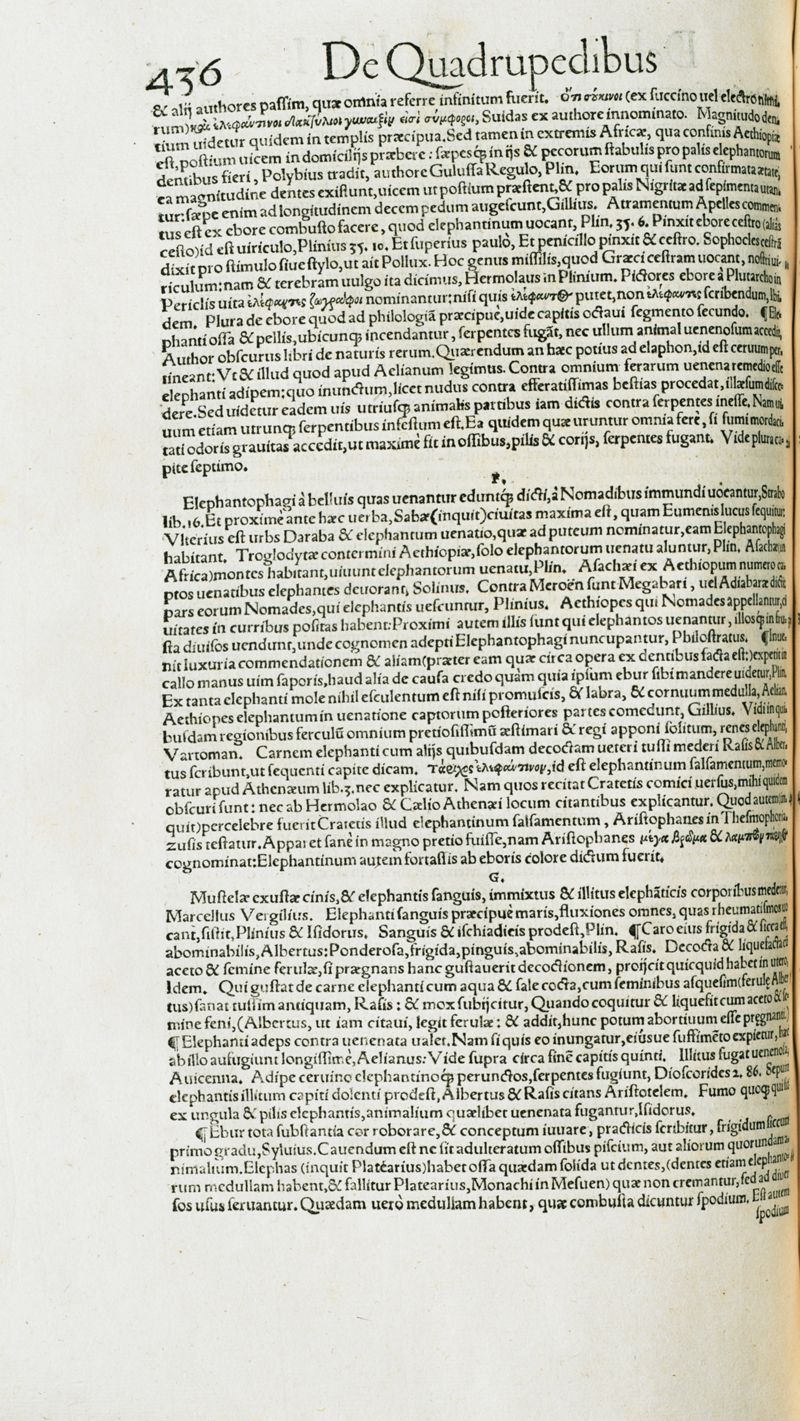 436 De Quadrupedibus
& alij authores paſſim, quæ omnia referre infinitum fuerit. Ὅτι σούκινοι (ex ſuccino uel electro
rum) καὶ ἐλεφάντινοι δακτύλιοι γυναιξὶν εἰσὶ σύμφοροι, Suidas ex authore innominato. Magnitudo den,
tium uidetur quidem in templis præcipua. Sed tamen in extremis Africæ, qua confinis Aethiopiæ
eſt, poſtium uicem in domicilijs præbere: ſæpesq́; in ijs & pecorum ſtabulis pro palis elephantorum
dentibus fieri, Polybius tradit, authore Guluſſa Regulo, Plin. Eorum qui ſunt confirmata ætate,
ea magnitudine dentes exiſtunt, uicem ut poſtium præſtent, & pro palis Nigritæ ad ſepimenta utan,
tur: ſæpe enim ad longitudinem decem pedum augeſcunt, Gillius. Atramentum Apelles commen,
tus eſt ex ebore combuſto facere, quod elephantinum uocant, Plin. 35. 6. Pinxit ebore ceſtro (aliàs
ceſto) id eſt uiriculo, Plinius 35. 10. Et ſuperius paulò, Et penicillo pinxit & ceſtro. Sophocles ceſtrā
dixit pro ſtimulo ſiue ſtylo, ut ait Pollux. Hoc genus miſſilis, quod Græci ceſtram uocant, noſtri ui,
riculum: nam & terebram uulgo ita dicimus, Hermolaus in Plinium. Pictores ebore à Plutarcho in
Periclis uita ἐλέφαντος ζωγράφοι nominantur: niſi quis putet, non ſcribendum, Ibi,
dem. Plura de ebore quod ad philologiā præcipuè, uide capitis octaui ſegmento ſecundo. ¶ Ele,
phanti oſſa & pellis, ubicunq; incendantur, ſerpentes fugāt, nec ullum animal uenenoſum accedit,
Author obſcurus libri de naturis rerum. Quærendum an hæc potius ad elaphon, id eſt ceruum per,
tineant: Vt & illud quod apud Aelianum legimus. Contra omnium ferarum uenena remedio eſſe
elephanti adipem: quo inunctum, licet nudus contra efferatiſſimas beſtias procedat, illæſum diſce,
dere. Sed uidetur eadem uis utriuſq; animalis partibus iam dictis contra ſerpentes ineſſe, Nam ui,
uum etiam utrunq; ſerpentibus infeſtum eſt. Ea quidem quæ uruntur omnia ferè, ſi fumi mordaci,
tati odoris grauitas accedit, ut maximè fit in oſſibus, pilis & corijs, ſerpentes fugant. Vide plura ca,
pite ſeptimo.
F.
Elephantophagi à belluis quas uenantur eduntq́; dicti, à Nomadibus immundi uocantur, Strabo
lib. 16. Et proximè ante hæc uerba, Sabæ (inquit) ciuitas maxima eſt, quam Eumenis lucus ſequitur:
Vlterius eſt urbs Daraba & elephantum uenatio, quæ ad puteum nominatur, eam Elephantophagi
habitant. Troglodytæ contermini Aethiopiæ, ſolo elephantorum uenatu aluntur, Plin. Aſachæ (in
Africa) montes habitant, uiuunt elephantorum uenatu, Plin. Aſachæi ex Aethiopum numero ca,
ptos uenatibus elephantes deuorant, Solinus. Contra Meroën ſunt Megabari, uel Adiabaræ dicti,
pars eorum Nomades, qui elephantis ueſcuntur, Plinius. Aethiopes qui Nomades appellantur, ci
uitates in curribus poſitas habent: Proximi autem illis ſunt qui elephantos uenantur, illosq́; in fru,
ſta diuiſos uendunt, unde cognomen adepti Elephantophagi nuncupantur, Philoſtratus. ¶ Inue,
nit luxuria commendationem & aliam (præter eam quæ circa opera ex dentibus facta eſt:) expetiti in
callo manus uim ſaporis, haud alia de cauſa credo quàm quia ipſum ebur ſibi mandere uidetur, Plin.
Ex tanta elephanti mole nihil eſculentum eſt niſi promuſcis, & labra, & cornuum medulla, Aelian.
Aethiopes elephantum in uenatione captorum poſteriores partes comedunt, Gillius. Vidi in qui,
buſdam regionibus ferculū omnium pretioſiſſimū æſtimari & regi apponi ſolitum, renes elephanti,
Vartoman. Carnem elephanti cum alijs quibuſdam decoctam ueteri tuſſi mederi Raſis & Alber,
tus ſcribunt, ut ſequenti capite dicam. Τάριχος ἐλεφάντινον, id eſt elephantinum ſalſamentum, memo,
ratur apud Athenæum lib. 3. nec explicatur. Nam quos recitat Cratetis comici uerſus, mihi quidem
obſcuri ſunt: nec ab Hermolao & Cælio Athenæi locum citantibus explicantur. Quod autem (in,
quit) percelebre fuerit Cratetis illud elephantinum ſalſamentum, Ariſtophanes in Theſmophoria,
zuſis teſtatur. Apparet ſanè in magno pretio fuiſſe, nam Ariſtophanes μέγα βρῶμα &
cognominat: Elephantinum autem fortaſſis ab eboris colore dictum fuerit.
G.
Muſtelæ exuſtæ cinis, & elephantis ſanguis, immixtus & illitus elephāticis corporibus medetur,
Marcellus Vergilius. Elephanti ſanguis præcipuè maris, fluxiones omnes, quas rheumatiſmos uo
cant, ſiſtit, Plinius & Iſidorus. Sanguis & iſchiadicis prodeſt, Plin. ¶ Caro eius frigida & ſicca eſt,
abominabilis, Albertus: Ponderoſa, frigida, pinguis, abominabilis, Raſis. Decocta & liquefacta cū
aceto & ſemine ferulæ, ſi prægnans hanc guſtauerit decoctionem, proijcit quicquid habet in utero,
Idem. Qui guſtat de carne elephanti cum aqua & ſale cocta, cum ſeminibus aſqueſim (ferulę Alber
tus) ſanat tuſſim antiquam, Raſis: & mox ſubijcitur, Quando coquitur & liquefit cum aceto & ſe,
mine feni, (Albertus, ut iam citaui, legit ferulæ: & addit, hunc potum abortiuum eſſe pręgnanti.)
¶ Elephanti adeps contra uenenata ualet. Nam ſi quis eo inungatur, eiúsue ſuffimēto expietur, hæc
ab illo aufugiunt longiſſimè, Aelianus: Vide ſupra circa finē capitis quinti. Illitus fugat uenenoſa,
Auicenna. Adipe ceruino elephantinoq́; perunctos, ſerpentes fugiunt, Dioſcorides 2. 86. Sepum
elephantis illitum capiti dolenti prodeſt, Albertus & Raſis citans Ariſtotelem. Fumo quoq; quilibet
ex ungula & pilis elephantis, animalium quælibet uenenata fugantur, Iſidorus.
¶ Ebur tota ſubſtantia cor roborare, & conceptum iuuare, practicis ſcribitur, frigidum ſiccum
primo gradu, Syluius. Cauendum eſt ne ſit adulteratum oſſibus piſcium, aut aliorum quorundam a,
nimalium. Elephas (inquit Platéarius) habet oſſa quædam ſolida ut dentes, (dentes etiam elephanto,
rum medullam habent, & fallitur Platearius, Monachi in Meſuen) quæ non cremantur, ſed ad diuer
ſos uſus ſeruantur. Quædam uerò medullam habent, quæ combuſta dicuntur ſpodium. Eſt autem
ſpodium